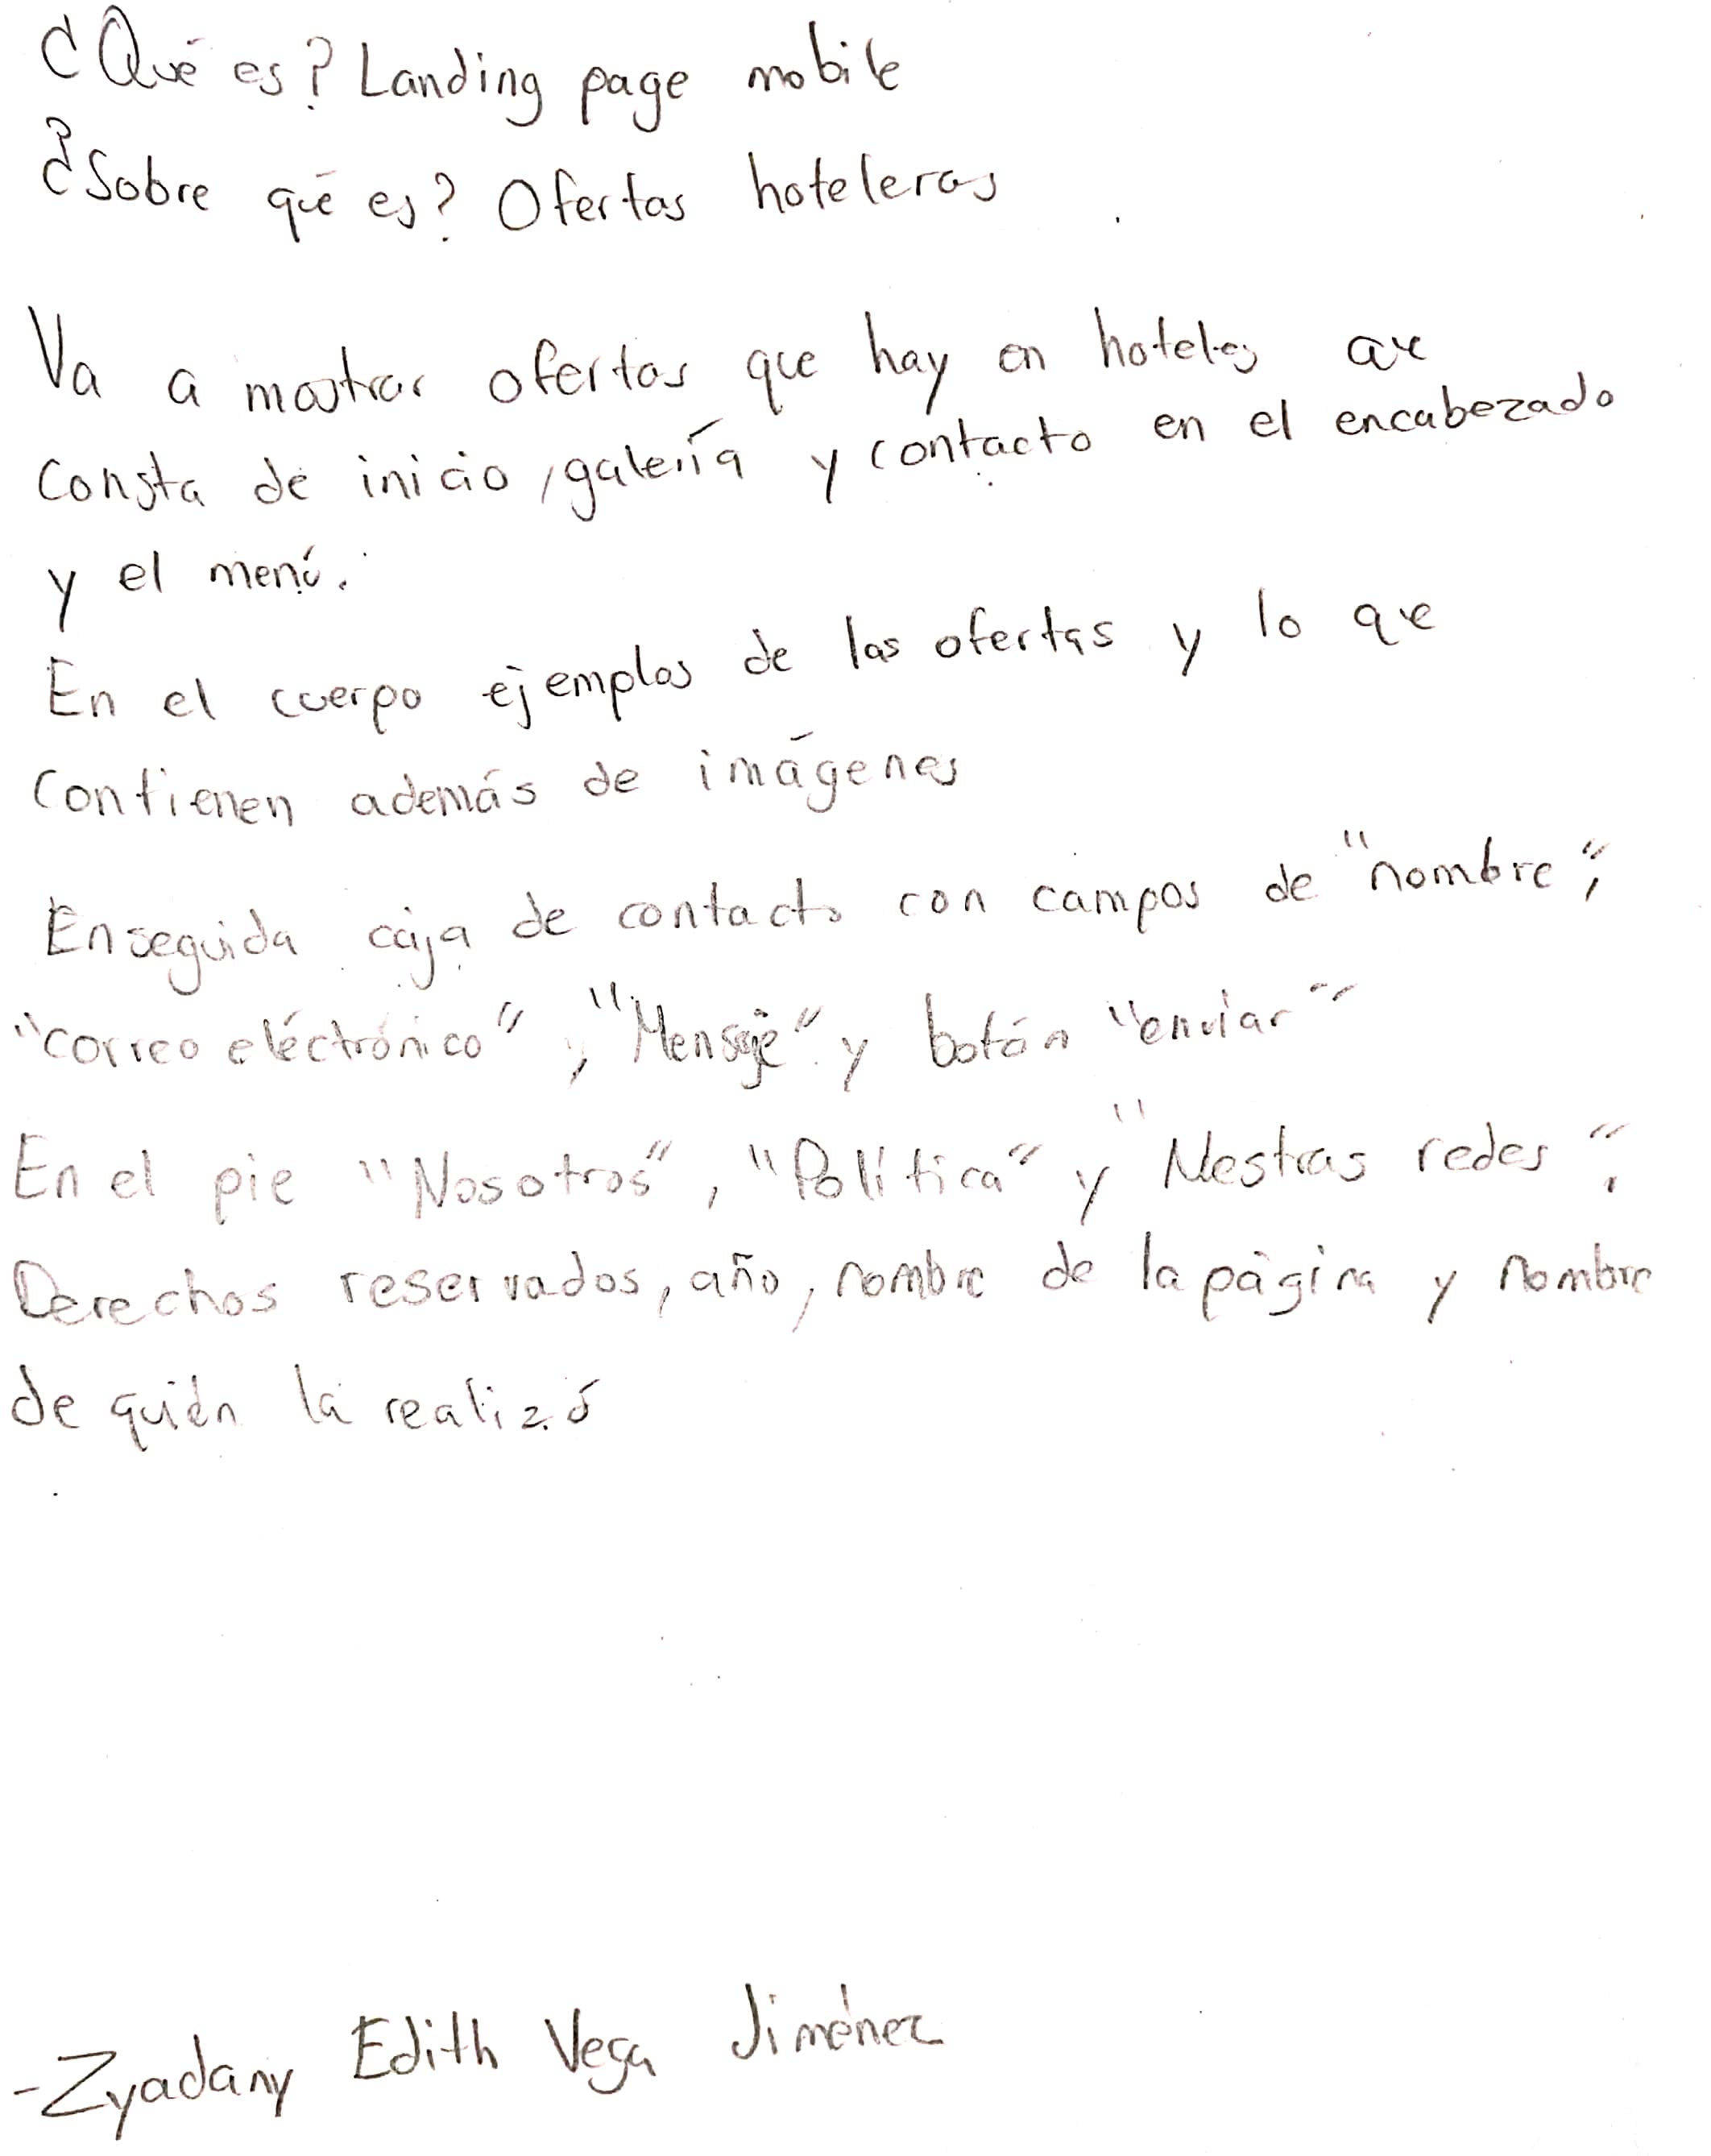 ¿Qué es? Landing page mobile
¿Sobre qué es? Ofertas hoteleras
Va a mostrar ofertas que hay en hoteles que
consta de inicio, galería y contacto en el encabezado
y el menú.
En el cuerpo ejemplos de las ofertas y lo que
contienen además de imágenes
Enseguida caja de contacto con campos de "nombre",
"correo eléctrónico", "Mensaje" y botón "enviar"
En el pie "Nosotros", "Política" y "Nestras redes",
Derechos reservados, año, nombre de la página y nombre
de quién la realizó
-Zyadany Edith Vega Jiménez